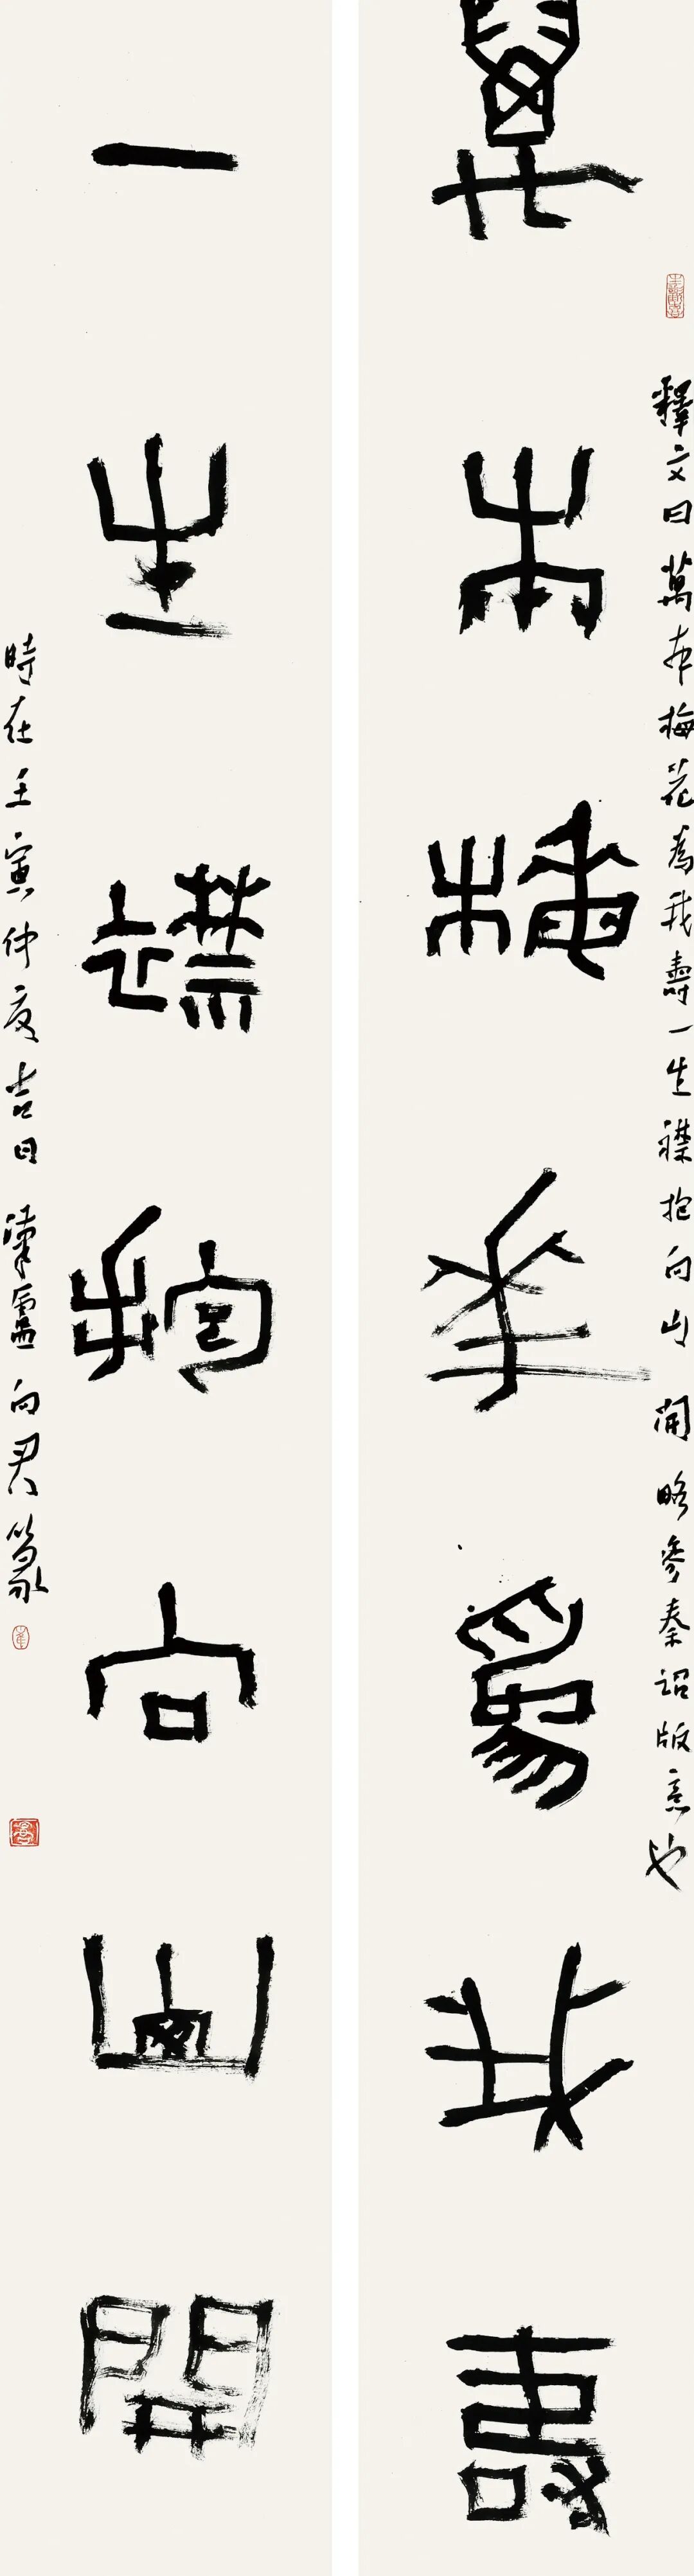 萬本梅華為我壽
釋文曰萬本梅花為我壽一生襟抱向山開略參秦詔版意也
一生襟抱向山開
時在壬寅仲夏吉日漢廬向君篆